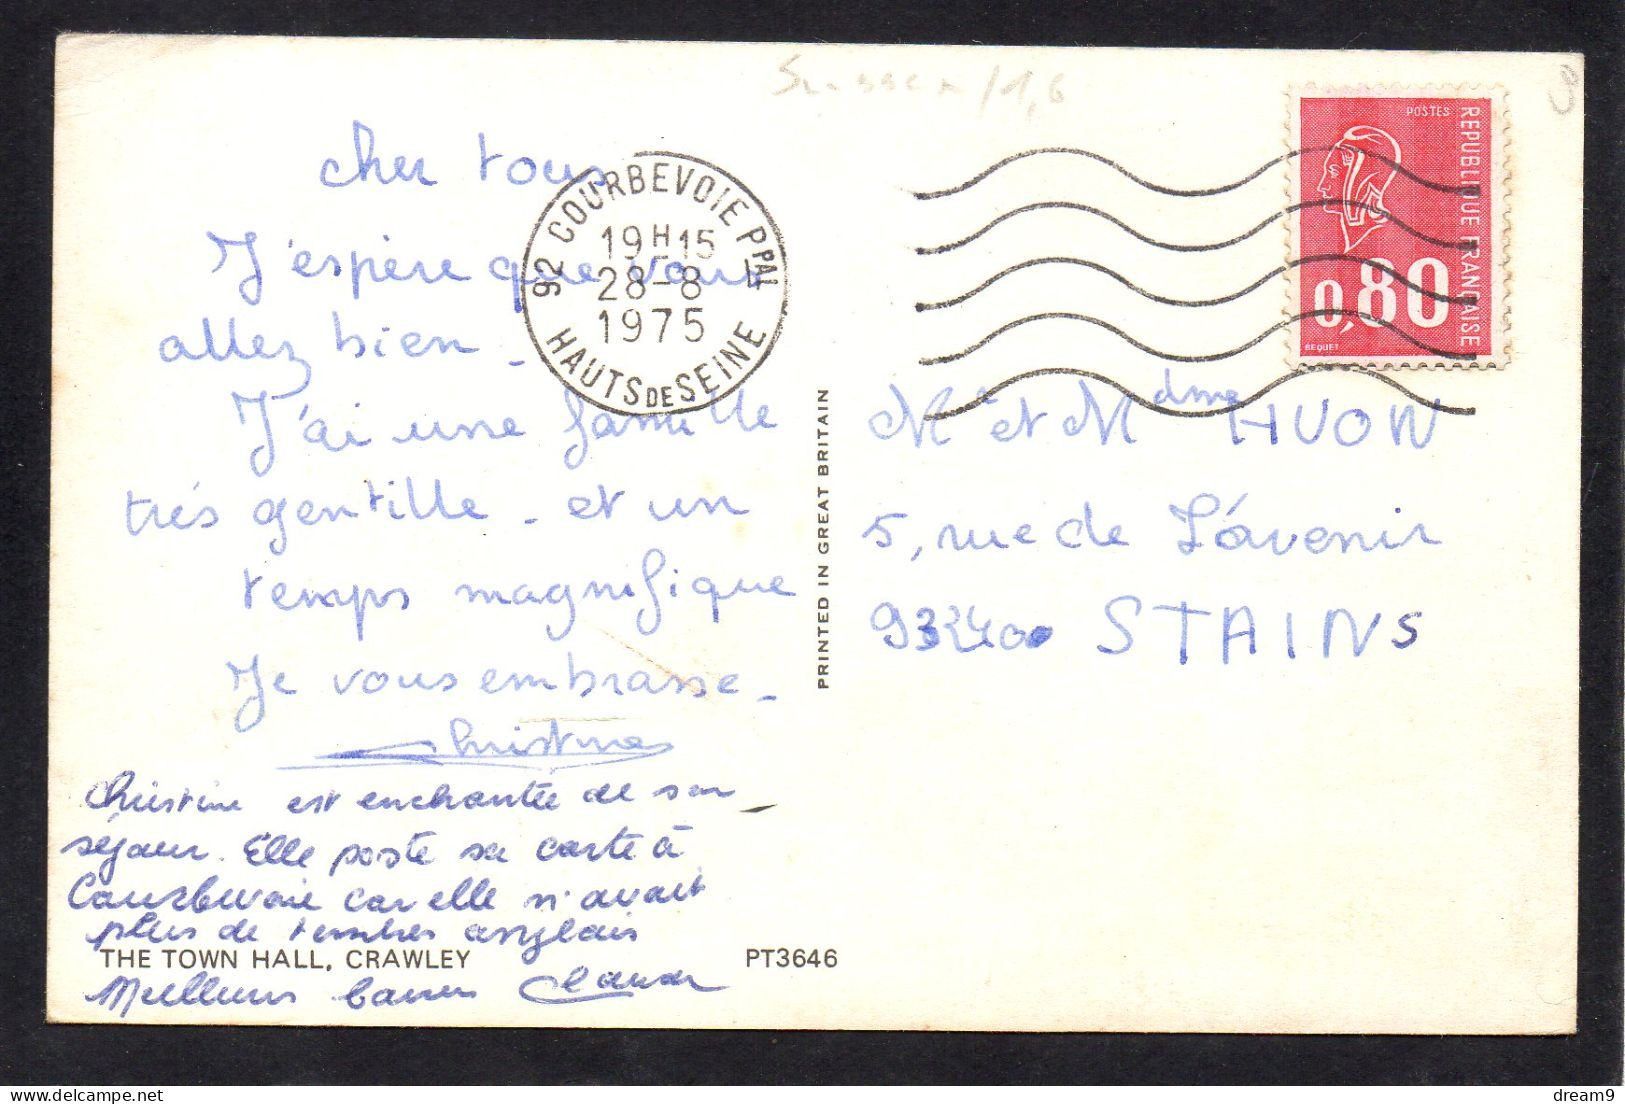 Sussex/1,6
cher tous
J'espère que vous
allez bien_
J'ai une famille
très gentille_ et un
temps magnifique
Je vous embrasse_
Christine
Christine est enchantée de son
séjour. Elle poste sa carte à
Courbevoie car elle n'avait
plus de timbres anglais
THE TOWN HALL, CRAWLEY
PT3646
Meilleurs baisers
92 COURBEVOIE PPAL
19H15
28-8
1975
HAUTS DE SEINE
PRINTED IN GREAT BRITAIN
POSTES
REPUBLIQUE FRANÇAISE
0,80
BEQUET
Mr et Mdme HUON
5, rue de L'avenir
93240 STAINS
dream9